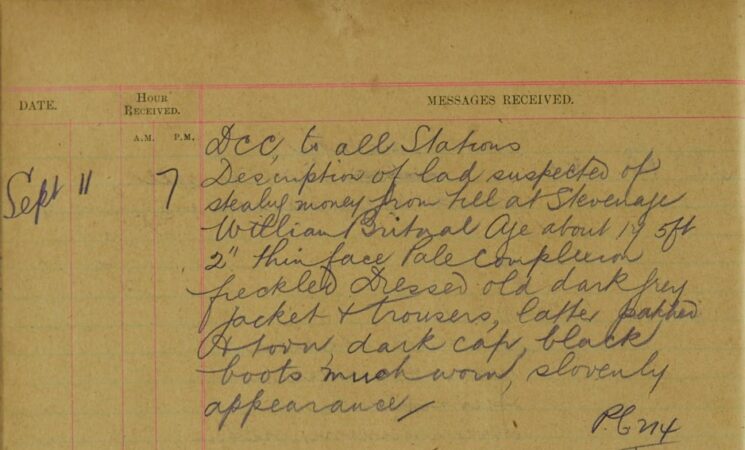 DATE.
HOUR RECEIVED.
MESSAGES RECEIVED.
A.M. P.M.
Sept 11 7
DCC, to all Stations
Description of lad suspected of
stealing money from till at Stevenage
William Age about 19 5ft
2" thin face Pale Complexion
freckled Dressed old dark grey
jacket + trousers, latter patched
+ torn, dark cap, black
boots much worn, slovenly
appearance
P.C 274